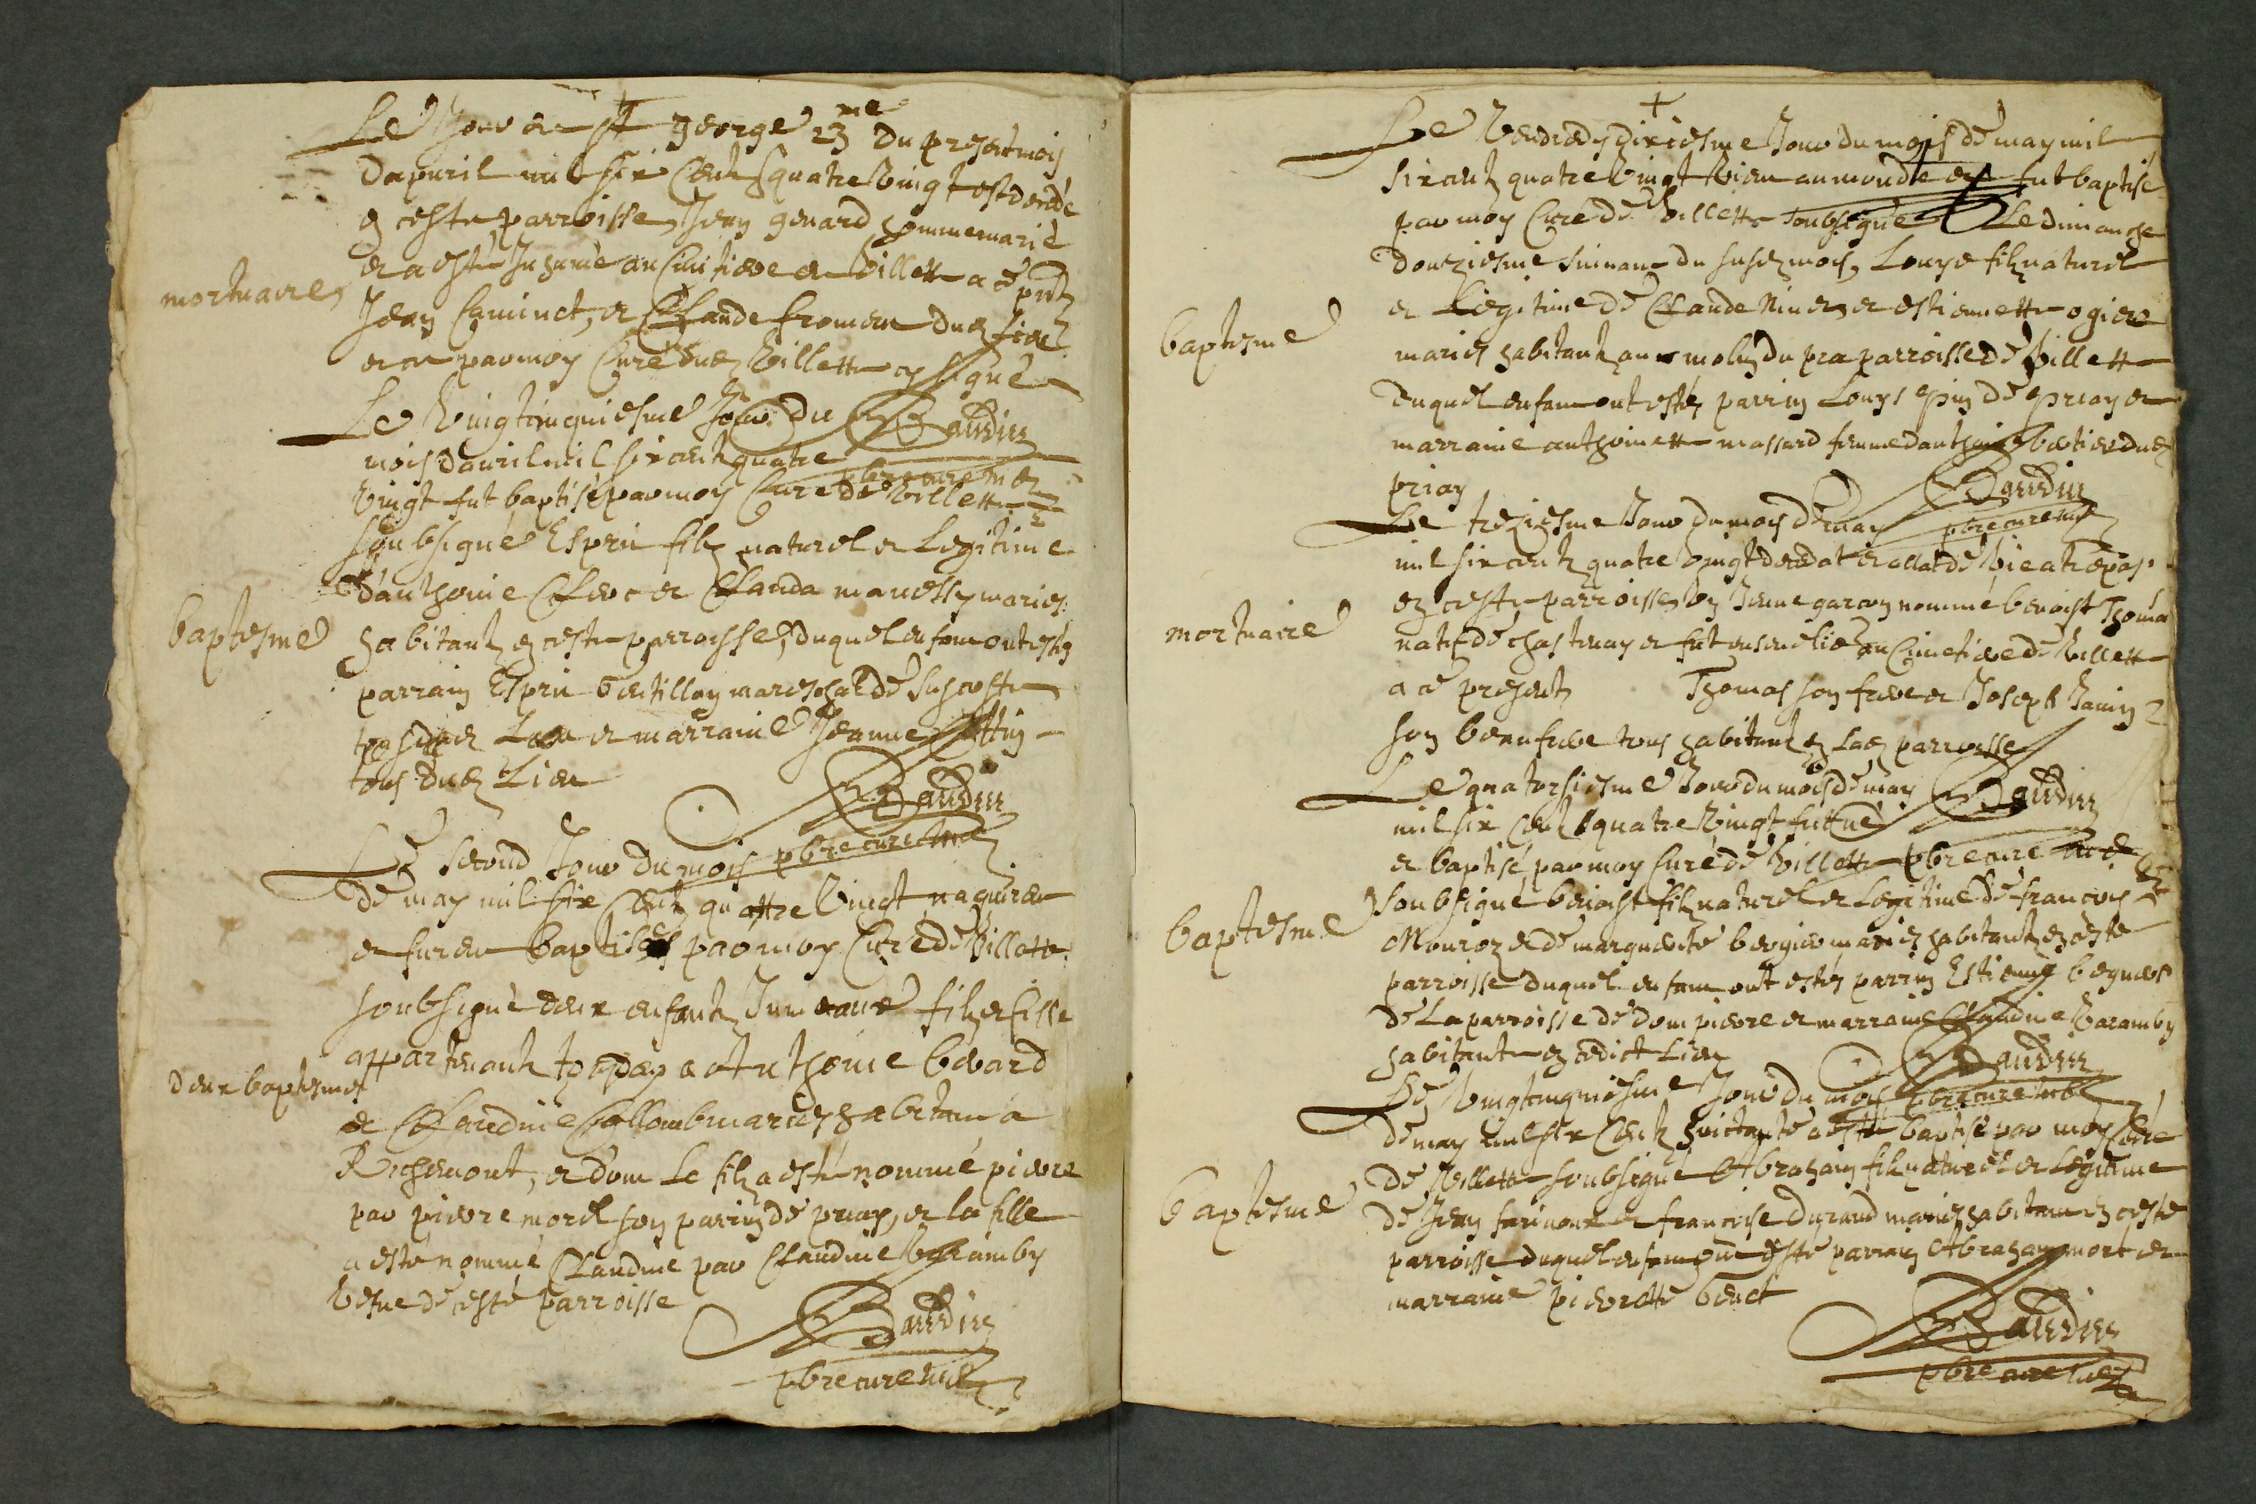 Le Jour de st george 23me du present mois
dapvril mil six Centz quatre Vingt est decedé
en ceste parroisse Jean genard homme marié
et a esté Inhumé au Cimetiere de Villette a ce pntz
mortuaire
Jean Caminet, et Claude froment dudz lieu
et ce par moy Curé dudz Villette cy signé
Baudin
pbre curé
Le Vingtcinquiesme Jour du
mois davril mil six centz quatre
Vingt fut baptisé par moy Curé de Villette
soubsigné Esprit filz naturel et Legitime
danthoine Clerc et Clauda mariez
baptesme
habitantz en ceste parroisse, duquel enfant ont estés
parrain Esprit mareschal de
et marraine Jeanne
tous dudz Lieu
Baudin
pbre curé
Le second Jour du mois
de may mil six Centz quattre Vingt naquirent
et furent baptisés par moy Curé de Villette
soubsigné deux enfantz Jumeaux filz et fille
appartenantz a Anthoine bévard
deux baptesmes
et Claudine Collomb mariez habitant a
Richemont, et dont le filz a esté nommé pierre
par pierre morel son parrin de priay, et la fille
a esté nommé Claudine par Claudine Varamby
Vefve de ceste parroisse
Baudin
pbre curé
Le Vendredy dixiesme Jour du mois de may mil
six centz quatre Vingt Vient au monde et fut baptisé
par moy Curé de Villette soubsigné Le dimanche
douziesme suivant du susdz mois, Louys filz naturel
et Legitime de Claude et estiennette ogier
baptesme
mariez habitantz au molin du pra parroisse de Villette
duquel enfant ont estés parrin Louys de priay et
marraine anthoinette massard femme danthoine dudz
priay
Baudin
pbre curé
Le treziesme Jour du mois de may
mil six centz quatre Vingt decedat et allat de Vie a trépas
en ceste parroisse un Jeune garçon nommé benoist Thomas
mortuaire
natif de chastenay et fut ensevelie au Cimetiere de Villette
a ce presentz Thomas son frere et Joseph
son beaufrere tous habitantz en ladz parroisse
Baudin
pbre curé
Le quatorsiesme Jour du mois de may
mil six Centz quatre Vingt fut né
et baptisé par moy Curé de Villette
soubsigné benoist filz naturel et Legitime de françois
baptesme
Mouroz et de marguerite bergier mariez habitantz en ceste
parroisse duquel enfant ont estés parrin Estienne
de La parroisse de dompierre et marraine Claudine Varamby
habitante en cedict Lieu
Baudin
pbre curé
Le Vingtcinquiesme Jour du mois
de may mil six Centz huictante a esté baptisé par moy Curé
de Villette soubsigné Abraham filz naturel et Legitime
baptesme
de Jean et françoise durand mariez habitant en ceste
parroisse duquel enfant ont esté parrain Abraham et
marraine pierrette
Baudin
pbre curé